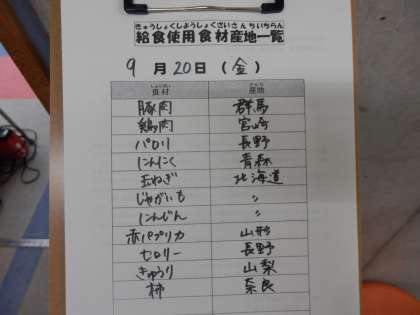 きゅうしょくしようしょくざいさんちいちらん
給食使用食材産地一覧
9月20日(金)
しょくざい さんち
食材 産地
豚肉 群馬
鶏肉 宮崎
パセリ 長野
にんにく 青森
玉ねぎ 北海道
じゃがいも 〃
にんじん 〃
赤パプリカ 山形
セロリー 長野
きゅうり 山梨
柿 奈良